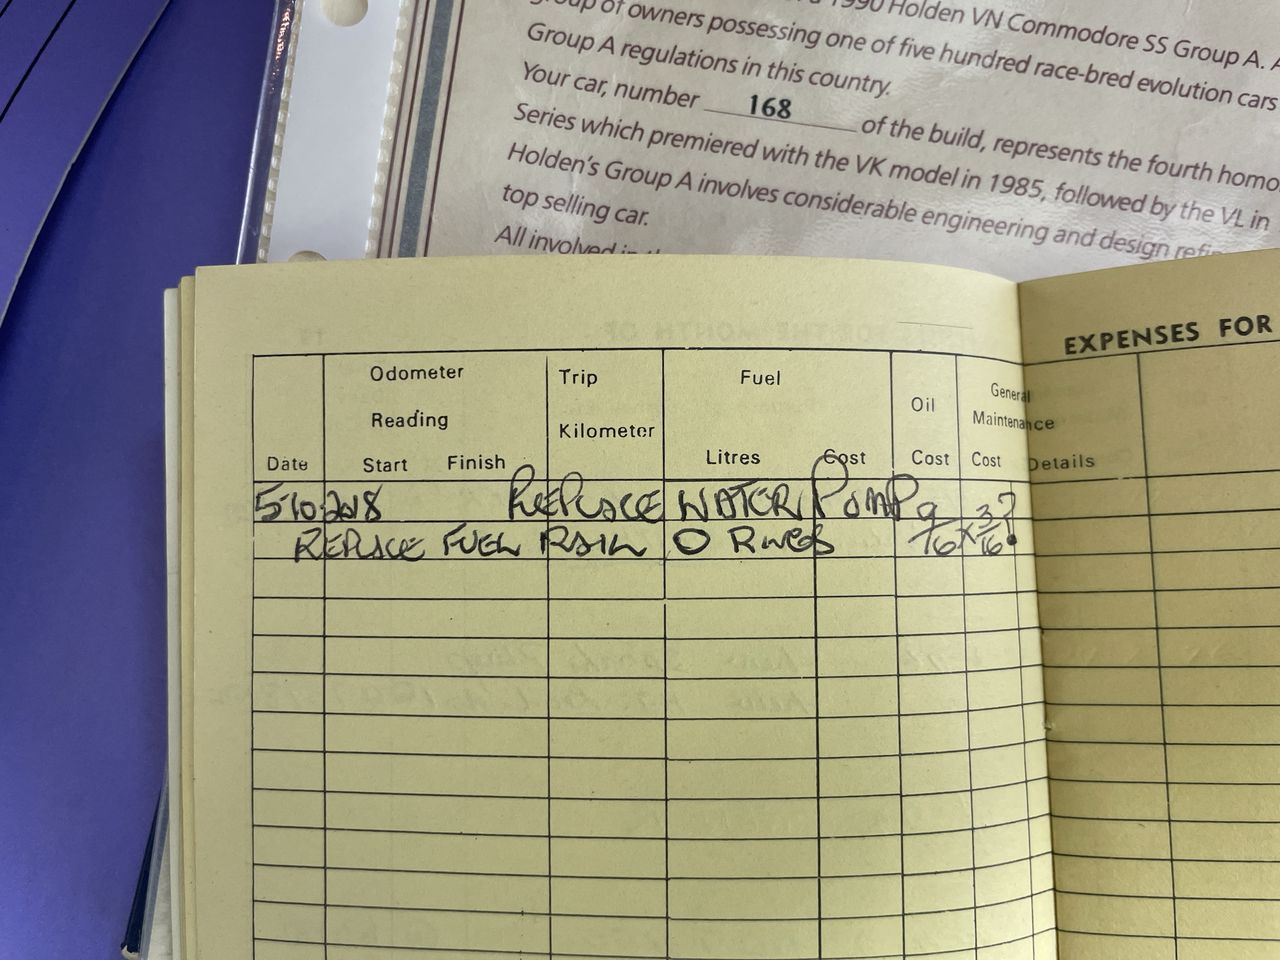 1990 Holden VN Commodore SS Group A. A
group of owners possessing one of five hundred race-bred evolution cars
Group A regulations in this country.
Your car, number 168 of the build, represents the fourth homo
Series which premiered with the VK model in 1985, followed by the VL in
Holden's Group A involves considerable engineering and design refi
top selling car.
All involved in
EXPENSES FOR
Odometer Trip Fuel General
Reading Kilometer Oil Maintenance
Date Start Finish Litres Cost Cost Cost Details
5.10.2018 REPLACE WATER PUMP
REPLACE FUEL RAIL O RINGS 9/16 x 3/16 ?